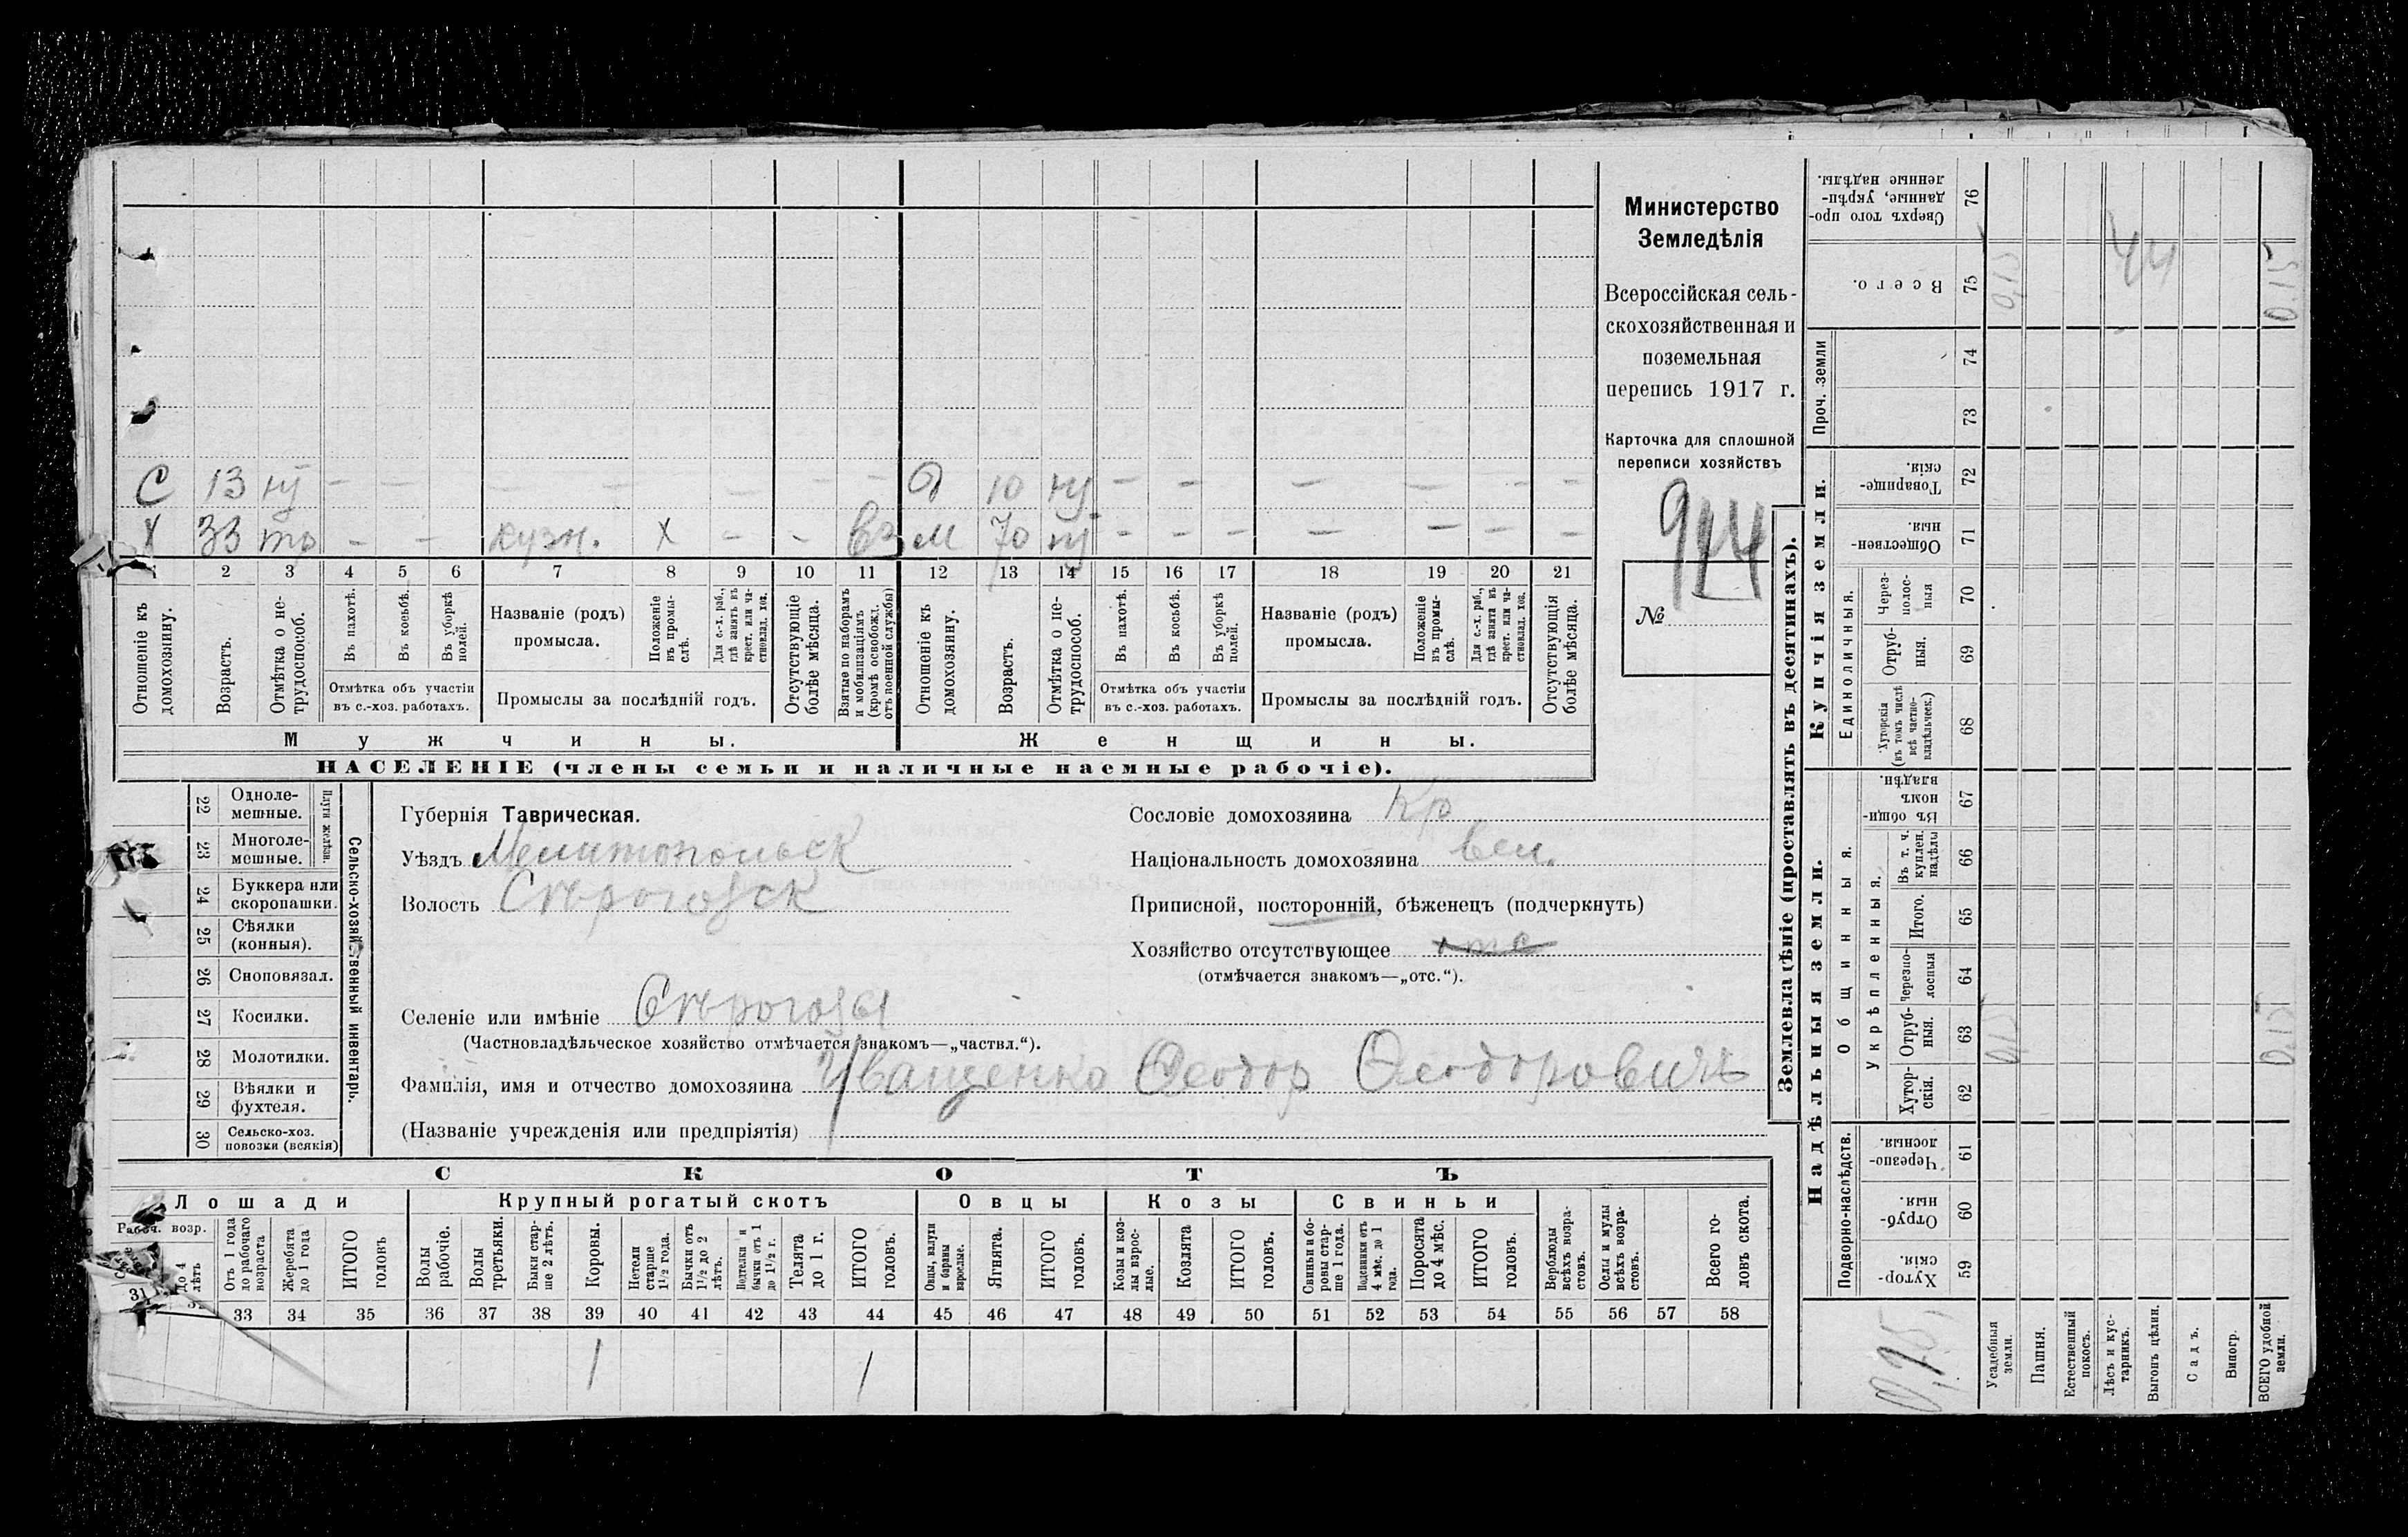 С 13 ну — — — — — — — — Д 10 ну — — — — — — —
Х 33 тр — — кузн. Х — — вз М 70 ну — — — — — — —
1 2 3 4 5 6 7 8 9 10 11 12 13 14 15 16 17 18 19 20 21
Отношеніе къ домохозяину.
Возрастъ.
Отмѣтка о не-
трудоспособ.
Въ пахотѣ.
Въ косьбѣ.
Въ уборкѣ полей.
Отмѣтка объ участіи
въ с.-хоз. работахъ.
Названіе (родъ)
промысла.
Положеніе въ промы-
слѣ.
Для с.-х. раб.,
гдѣ занятъ въ
крест. или ча-
стновлад. хоз.
Промыслы за послѣдній годъ.
Отсутствующіе
болѣе мѣсяца.
Взятые по наборамъ
и мобилизаціямъ
(кромѣ освобожд.
отъ военной службы)
Отношеніе къ
домохозяину.
Возрастъ.
Отмѣтка о не-
трудоспособ.
Въ пахотѣ.
Въ косьбѣ.
Въ уборкѣ
полей.
Отмѣтка объ участіи
въ с.-хоз. работахъ.
Названіе (родъ)
промысла.
Положеніе
въ промы-
слѣ.
Для с.-х. раб.,
гдѣ занята въ
крест. или ча-
стновлад. хоз.
Промыслы за послѣдній годъ.
Отсутствующія
болѣе мѣсяца.
Мужчины. Женщины.
НАСЕЛЕНІЕ (члены семьи и наличные наемные рабочіе).
Министерство
Земледѣлія
Всероссійская сель-
скохозяйственная и
поземельная
перепись 1917 г.
Карточка для сплошной
переписи хозяйствъ
№ 944
22 Одноле-
мешные.
23 Многоле-
мешные.
Плуги желѣзн.
24 Буккера или
скоропашки.
25 Сѣялки
(конныя).
26 Сноповязал.
27 Косилки.
28 Молотилки.
29 Вѣялки и
фухтеля.
30 Сельско-хоз.
повозки (всякія)
Сельско-хозяйственный инвентарь.
Губернія Таврическая.
Уѣздъ Мелитопольск
Волость Сѣрогозск
Селеніе или имѣніе Сѣрогозы
(Частновладѣльческое хозяйство отмѣчается знакомъ—„частвл.“).
Фамилія, имя и отчество домохозяина Иващенко Ѳеодор Ѳеодоровичъ
(Названіе учрежденія или предпріятія)
Сословіе домохозяина Кр
Національность домохозяина вел.
Приписной, посторонній, бѣженецъ (подчеркнуть)
Хозяйство отсутствующее отс
(отмѣчается знакомъ—„отс.“).
СКОТЪ
Лошади Крупный рогатый скотъ Овцы Козы Свиньи
Рабоч. возр.
до 4
лѣтъ
Отъ 1 года
до рабочаго
возраста
Жеребята
до 1 года
ИТОГО
головъ
Волы
рабочіе.
Волы
третьяки.
Быки стар-
ше 2 лѣтъ.
Коровы.
Нетели
старше
1½ года.
Бычки отъ
1½ до 2
лѣтъ.
Нетелки и
бычки отъ 1
до 1½ г.
Телята
до 1 г.
ИТОГО
головъ.
Овцы, валухи
и бараны
взрослые.
Ягнята.
ИТОГО
головъ.
Козы и коз-
лы взрос-
лые.
Козлята
ИТОГО
головъ.
Свиньи и бо-
ровы стар-
ше 1 года.
Подсвинки отъ
4 мѣс. до 1
года.
Поросята
до 4 мѣс.
ИТОГО
головъ.
Верблюды
всѣхъ возра-
стовъ.
Ослы и мулы
всѣхъ возра-
стовъ.
Всего го-
ловъ скота.
31 33 34 35 36 37 38 39 40 41 42 43 44 45 46 47 48 49 50 51 52 53 54 55 56 57 58
1 1
Землевладѣніе (проставлять въ десятинахъ).
Купчія земли.
Надѣльныя земли.
Сверхъ того про-
данные, укрѣп-
ленные надѣлы. 76
Всего. 75 0,15 44 0,15
Проч. земли
74
73
Товарище-
скія. 72
Обществен-
ныя. 71
Единоличныя.
Через-
полос-
ныя 70
Отруб-
ныя. 69
Хуторскія
(въ томъ числѣ
всѣ частно-
владѣльческ.) 68
Общинныя.
Въ общи-
номъ
владѣн. 67
Укрѣпленныя.
Въ т. ч.
куплен.
надѣлы 66
Итого. 65
Черезпо-
лосныя 64
Отруб-
ныя. 63 0,15 0,15
Хутор-
скія. 62
Подворно-наслѣдств.
Черезпо-
лосныя. 61
Отруб-
ныя. 60
Хутор-
скія. 59
Усадебныя
земли.
Пашня.
Естественный
покосъ.
Лѣсъ и кус-
тарникъ.
Выгонъ цѣлин.
Садъ.
Виногр.
ВСЕГО удобной
земли.